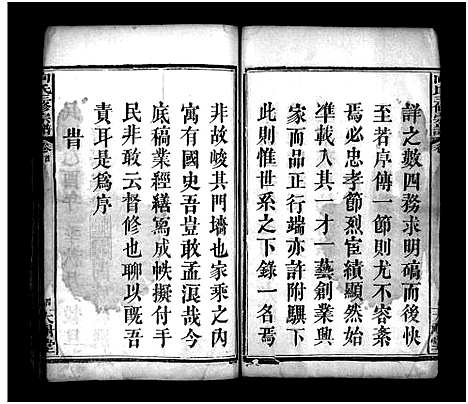 詳之數四務求明確而後快
至若序傳一節則尤不容紊
焉必忠孝節烈宦績顯然始
準載入其一才一藝創業興
家而品正行端亦許附驥下
此則惟世系之下錄一名焉
非故峻其門墻也家乘之內
寓有國史吾豈敢孟浪哉今
底稿業經繕寫成帙擬付手
民非敢云督修也聊以旣吾
責耳是為序
昔
氏三修宗譜